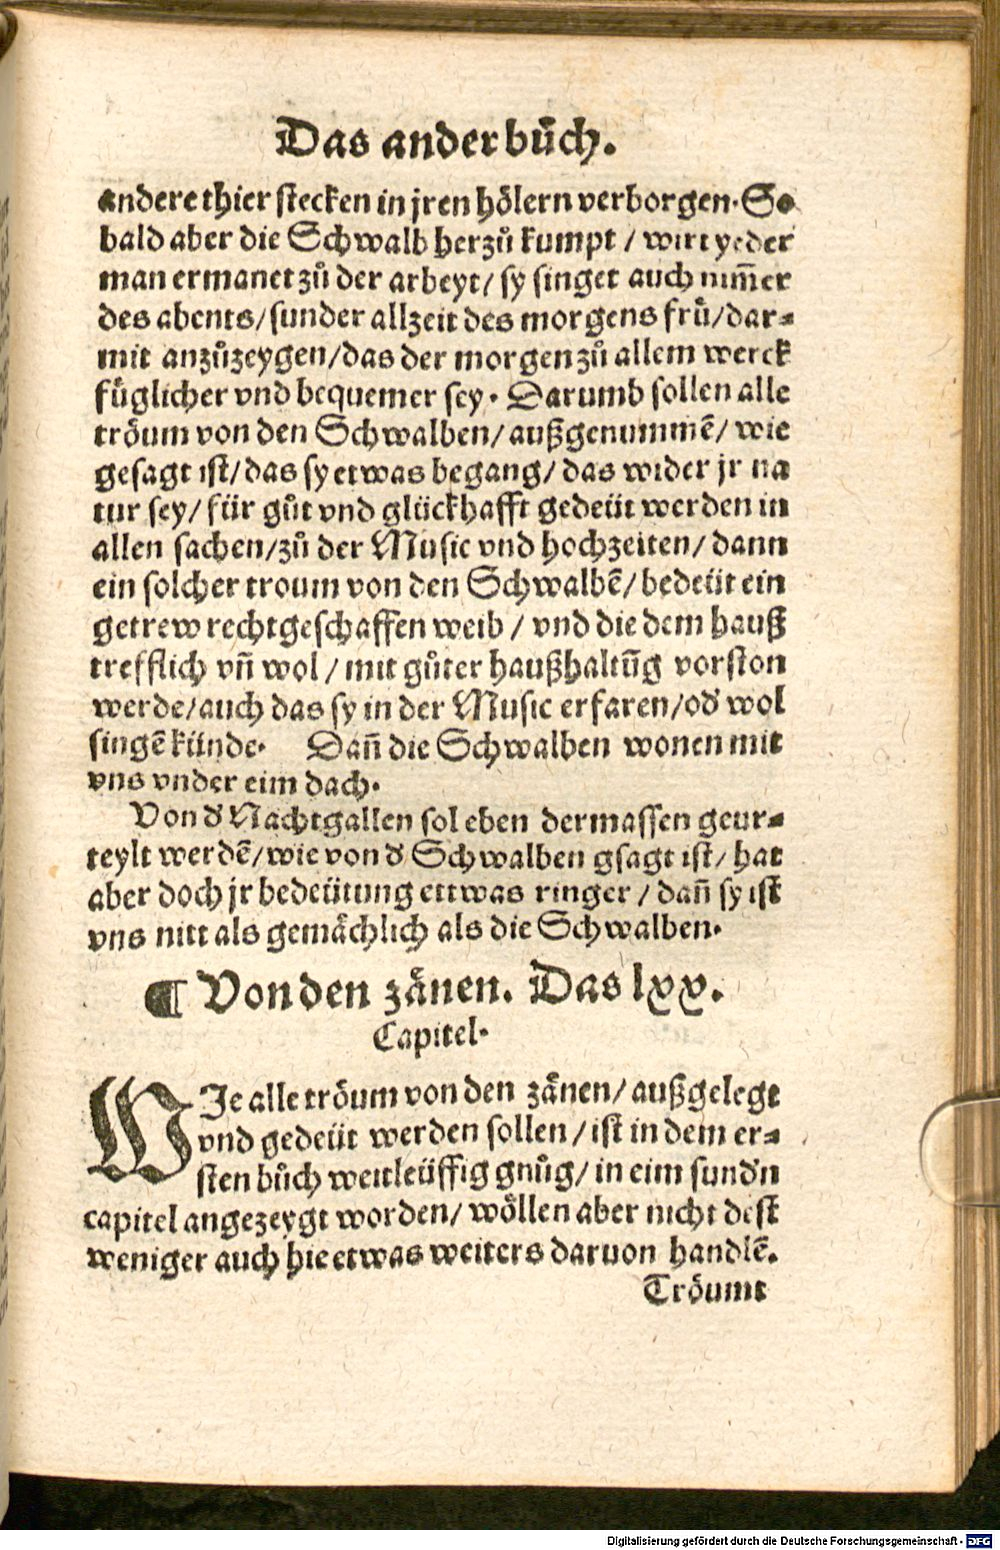 Das ander bůch.
andere thier stecken in jren hölern verborgen. So
bald aber die Schwalb herzů kumpt / wirt yeder
man ermanet zů der arbeyt / sy singet auch nim̄er
des abents / sunder allzeit des morgens frü / dar⸗
mit anzůzeygen / das der morgen zů allem werck
füglicher vnd bequemer sey. Darumb sollen alle
tröum von den Schwalben / außgenummē / wie
gesagt ist / das sy etwas begang / das wider jr na
tur sey / für gůt vnd glückhafft gedeüt werden in
allen sachen / zů der Music vnd hochzeiten / dann
ein solcher troum von den Schwalbē / bedeüt ein
getrew rechtgeschaffen weib / vnd die dem hauß
trefflich vn̄ wol / mit gůter haußhaltūg vorston
werde / auch das sy in der Music erfaren / od' wol
singē künde. Dan̄ die Schwalben wonen mit
vns vnder eim dach.
Von d' Nachtgallen sol eben dermassen geur⸗
teylt werdē / wie von d' Schwalben gsagt ist / hat
aber doch jr bedeütung ettwas ringer / dan̄ sy ist
vns nitt als gemächlich als die Schwalben.
¶ Von den zänen. Das lxx.
Capitel.
WIe alle tröum von den zänen / außgelegt
vnd gedeüt werden sollen / ist in dem er⸗
sten bůch weitleüffig gnůg / in eim sund'n
capitel angezeygt worden / wöllen aber nicht dest
weniger auch hie etwas weiters daruon handlē.
Tröumt
Digitalisierung gefördert durch die Deutsche Forschungsgemeinschaft - DFG